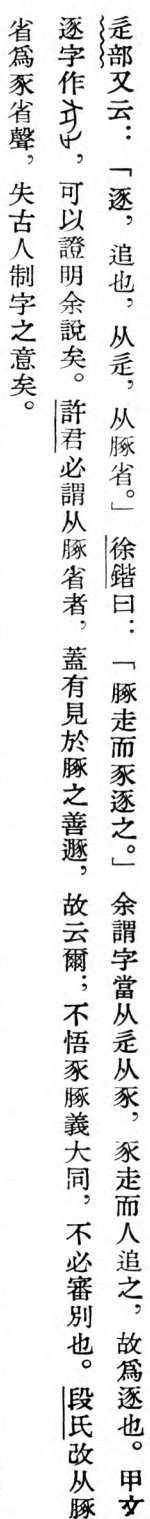 辵部又云：「逐，追也，从辵，从豚省。」徐鍇曰：「豚走而豕逐之。」余謂字當从辵从豕，豕走而人追之，故爲逐也。甲文
逐字作，可以證明余說矣。許君必謂从豚省者，蓋有見於豚之善遯，故云爾；不悟豕豚義大同，不必審別也。段氏改从豚
省爲豕省聲，失古人制字之意矣。